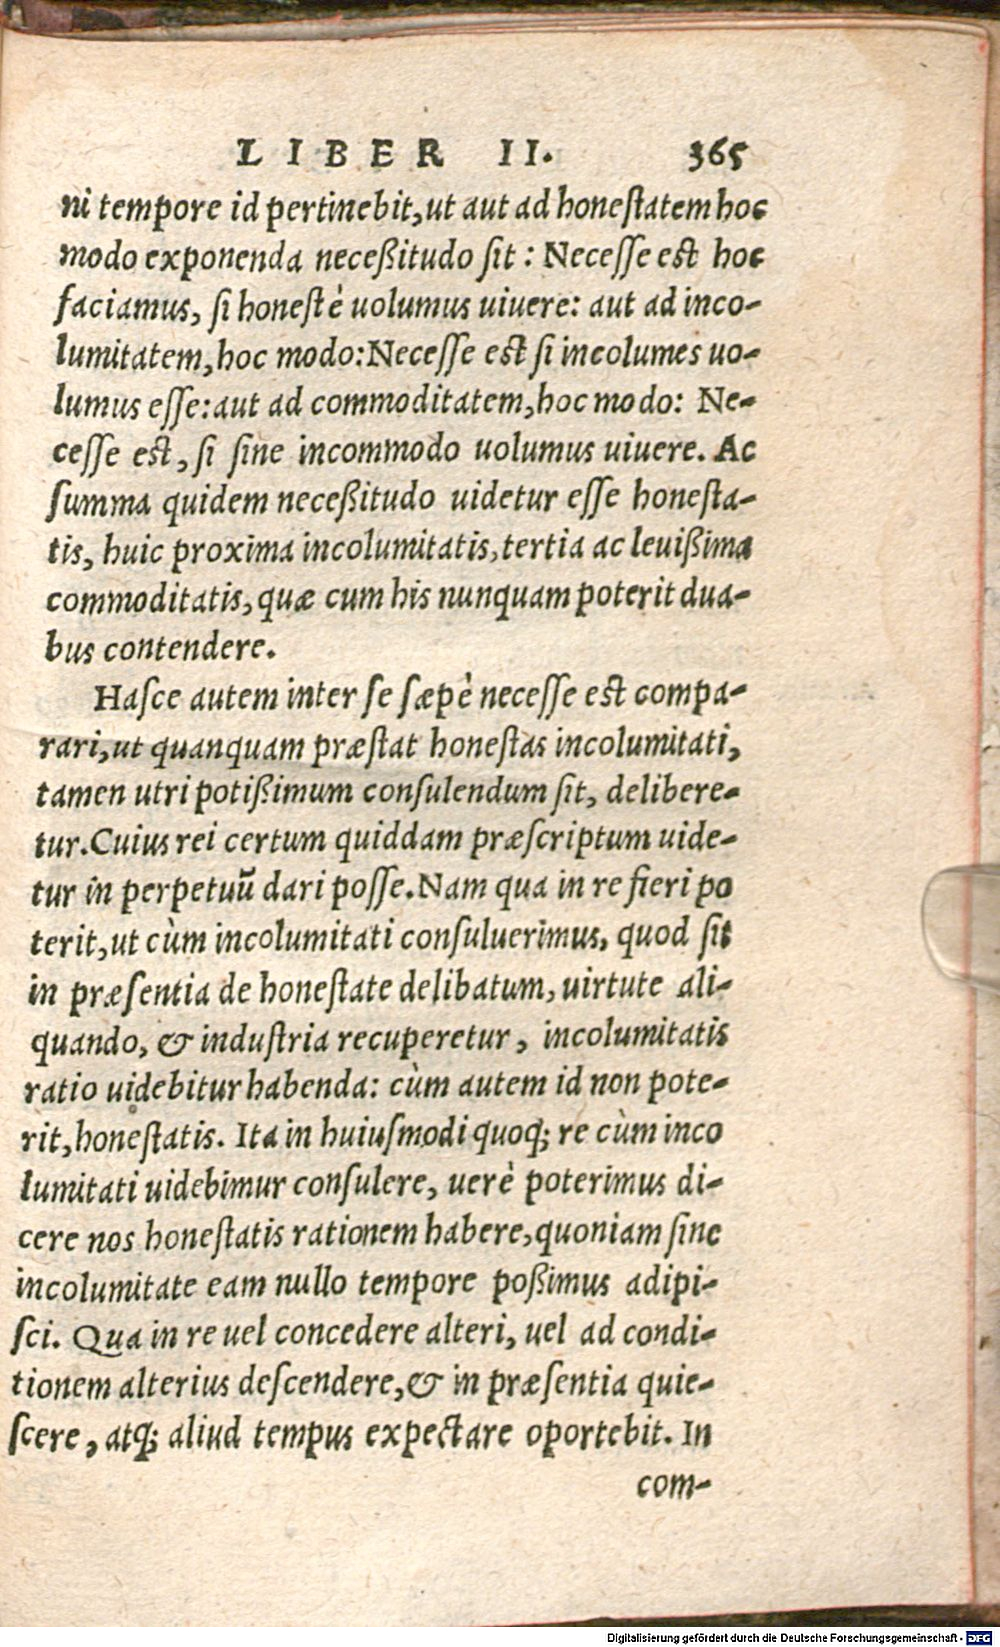 LIBER II. 365
ni tempore id pertinebit, ut aut ad honeſtatem hoc
modo exponenda neceßitudo ſit : Neceſſe est hoc
faciamus, ſi honeſtè uolumus uiuere: aut ad inco-
lumitatem, hoc modo: Neceſſe est ſi incolumes uo-
lumus eſſe: aut ad commoditatem, hoc modo: Ne-
ceſſe est, ſi ſine incommodo uolumus uiuere. Ac
ſumma quidem neceßitudo uidetur eſſe honeſta-
tis, huic proxima incolumitatis, tertia ac leuißima
commoditatis, quæ cum his nunquam poterit dua-
bus contendere.
Haſce autem inter ſe ſæpè neceſſe est compa-
rari, ut quanquam præſtat honeſtas incolumitati,
tamen utri potißimum conſulendum ſit, delibere-
tur. Cuius rei certum quiddam præſcriptum uide-
tur in perpetuū dari poſſe. Nam qua in re fieri po
terit, ut cùm incolumitati conſuluerimus, quod ſit
in præſentia de honeſtate delibatum, uirtute ali-
quando, & induſtria recuperetur, incolumitatis
ratio uidebitur habenda: cùm autem id non pote-
rit, honeſtatis. Ita in huiuſmodi quoq; re cùm inco
lumitati uidebimur conſulere, uerè poterimus di-
cere nos honeſtatis rationem habere, quoniam ſine
incolumitate eam nullo tempore poßimus adipi-
ſci. Qua in re uel concedere alteri, uel ad condi-
tionem alterius deſcendere, & in præſentia quie-
ſcere, atq; aliud tempus expectare oportebit. In
com-
Digitalisierung gefördert durch die Deutsche Forschungsgemeinschaft - DFG